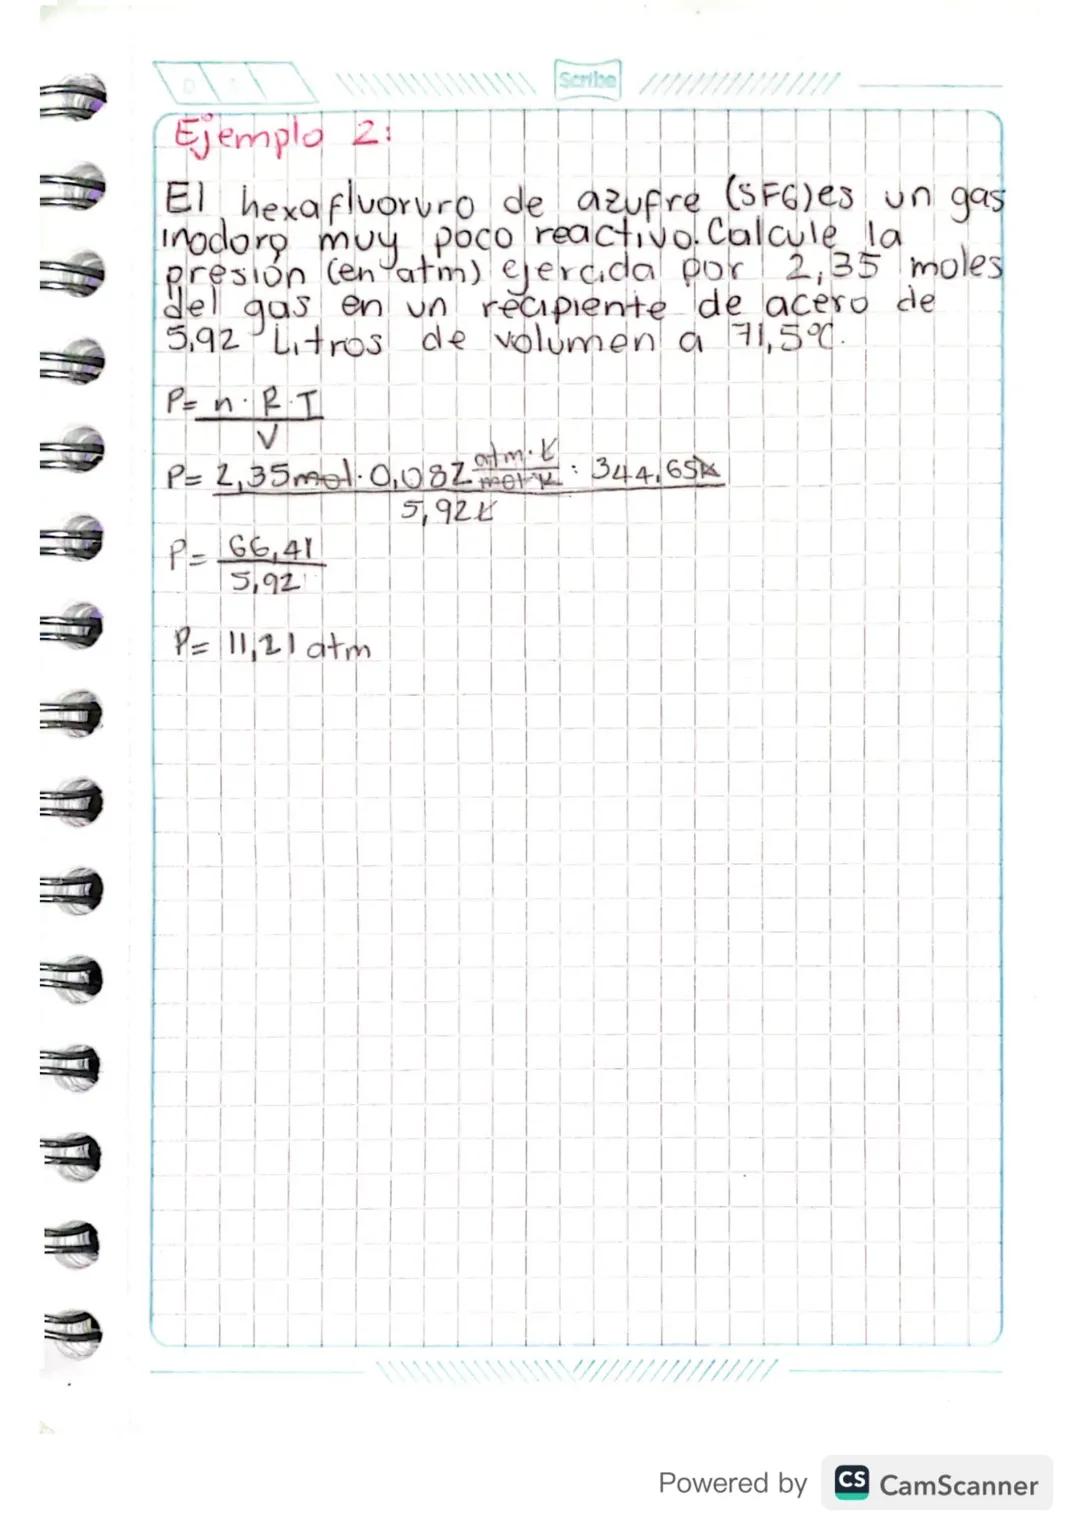 Scribe
Ejemplo 2:
El hexafluoruro de azufre (SF6)es un gas
inodoro muy poco reactivo. Calcule la
presión (en atm) ejercida por 2,35 moles
del gas en un recipiente de acero de
5,92 Litros de volumen a 71,5°C.
P= n · R · T
V
P= 2,35mol · 0,082 atm · L : 344,65K
mol · K
5,92L
P= 66,41
5,92
P= 11,21 atm
Powered by CS CamScanner